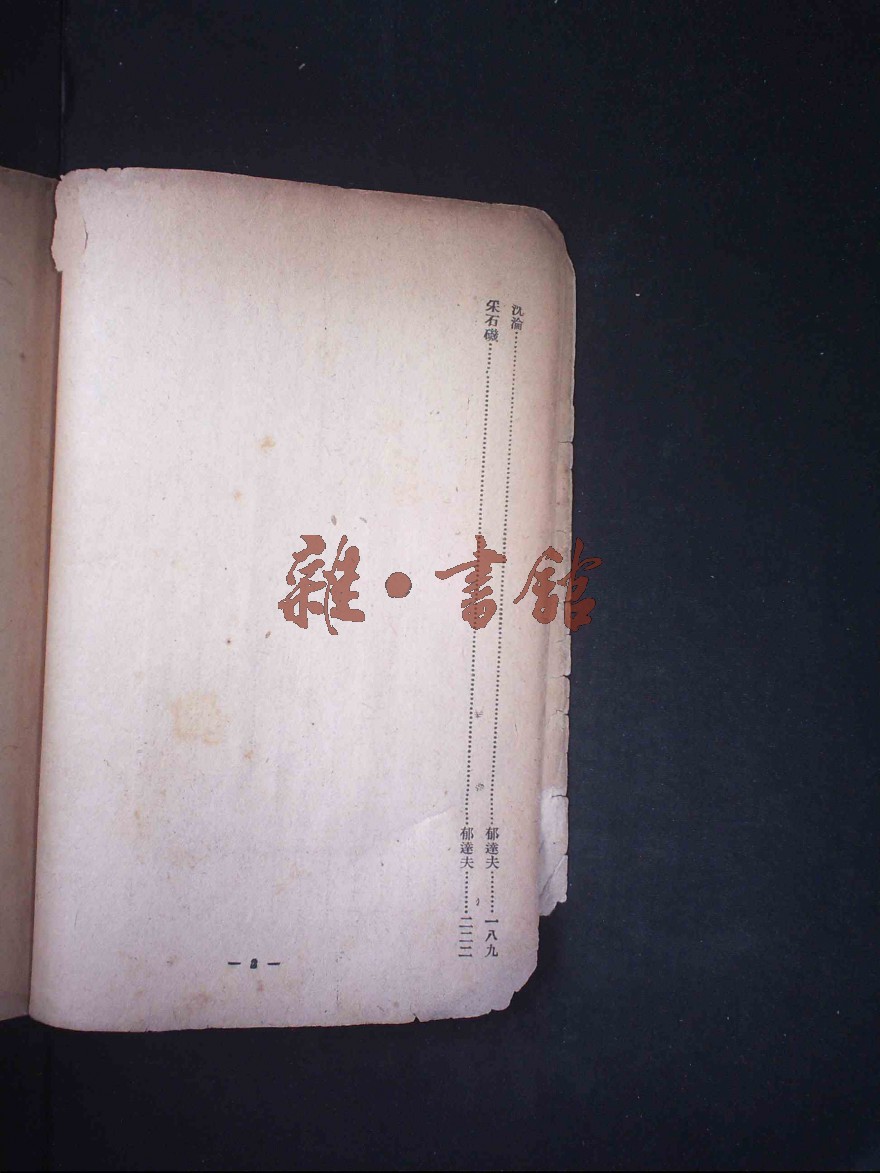 沉淪……郁達夫……一八九
采石磯……郁達夫……二二二
— 2 —
雜·書館